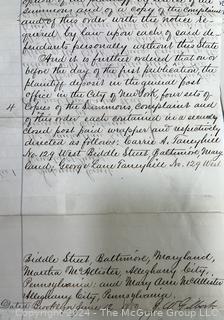 summons and of a copy of the complaint
and of this order with the notice Re-
quired by law upon each of said de-
fendants personally without this State
And it is further ordered that on or
before the day of the first publication, the
plaintiff deposits in the general post
office in the City of New York, four sets of
4
Copies of the Summons complaint and
of this order each contained in a securely
closed post paid wrapper and respectively
directed as follows: Carrie A. Fannyhill
No. 129 West Biddle Street, Baltimore, Mary
land; George Ann Fannyhill No. 129 West
Biddle Street, Baltimore, Maryland,
Martin McAlister, Alleghany City,
Pennsylvania; and Mary Ann McAlister
Alleghany City, Pennsylvania.
Dated Brooklyn June
Copyright © 2024 - The Photo Archive